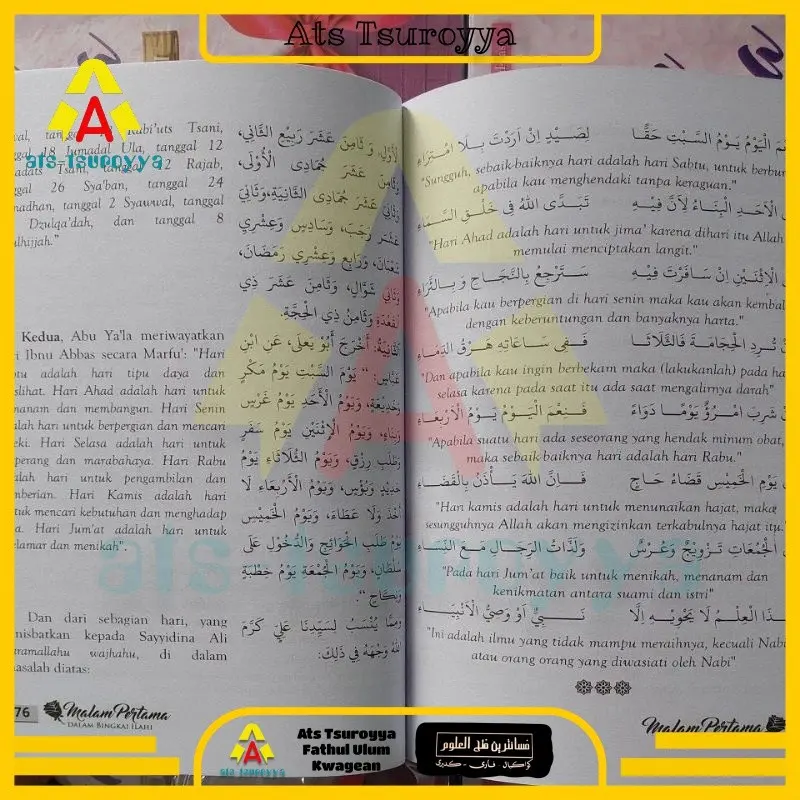 Ats Tsuroyya
A
ats-Tsuroyya
tanggal Rabi'uts Tsani,
18 Jumadal Ula, tanggal 12
Tsani, tanggal 12 Rajab,
26 Sya'ban, tanggal 24
tanggal 2 Syawwal, tanggal
Dzulqa'dah, dan tanggal 8
Kedua, Abu Ya'la meriwayatkan
Ibnu Abbas secara Marfu': "Hari
adalah hari tipu daya dan
Hari Ahad adalah hari untuk
dan membangun. Hari Senin
hari untuk berpergian dan mencari
Hari Selasa adalah hari untuk
dan marabahaya. Hari Rabu
hari untuk pengambilan dan
Hari Kamis adalah hari
mencari kebutuhan dan menghadap
Hari Jum'at adalah hari untuk
dan menikah".
Dan dari sebagian hari, yang
kepada Sayyidina Ali
wajhahu, di dalam
diatas:
الْأَوَّلِ، وَثَامِنَ عَشَرَ رَبِيْعِ الثَّانِي،
وَثَامِنَ عَشَرَ جُمَادِى الْأُوْلَى،
وَثَانِيَ عَشَرَ جُمَادِى الثَّانِيَةِ، وَثَانِيَ
عَشَرَ رَجَبَ، وَسَادِسَ وَعِشْرِي
شَعْبَانَ، وَرَابِعَ وَعِشْرِي رَمَضَانَ،
وَثَانِي شَوَّالٍ، وَثَامِنَ عَشَرَ ذِي
الْقَعْدَةِ وَثَامِنَ ذِي الْحِجَّةِ.
الثَّانِيَةُ: أَخْرَجَ أَبُوْ يَعْلَى، عَنِ ابْنِ
عَبَّاسٍ: " يَوْمُ السَّبْتِ يَوْمُ مَكْرٍ
وَخَدِيْعَةٍ، وَيَوْمُ الْأَحَدِ يَوْمُ غَرْسٍ
وَبِنَاءٍ، وَيَوْمُ الْإِثْنَيْنِ يَوْمُ سَفَرٍ
وَطَلَبِ رِزْقٍ، وَيَوْمُ الثُّلَاثَاءِ يَوْمُ
حَدِيْدٍ وَبُؤْسٍ، وَيَوْمُ الْأَرْبِعَاءِ لَا
أَخْذَ وَلَا عَطَاءَ، وَيَوْمُ الْخَمِيْسِ
يَوْمُ طَلَبِ الْحَوَائِجِ وَالدُّخُوْلِ عَلَى
سُلْطَانٍ، وَيَوْمُ الْجُمْعَةِ يَوْمُ خِطْبَةٍ
وَنِكَاحٍ ".
وَمِمَّا يُنْسَبُ لِسَيِّدِنَا عَلِيٍّ كَرَّمَ
اللهُ وَجْهَهُ فِي ذَلِكَ:
ats Tsuroyya
76
Malam Pertama
DALAM BINGKAI ILAHI
الْيَوْمُ يَوْمُ السَّبْتِ حَقًّا لِصَيْدٍ اِنْ اَرَدْتَ بِلَا امْتِرَاءِ
"Sungguh, sebaik-baiknya hari adalah hari Sabtu, untuk
apabila kau menghendaki tanpa keraguan."
الْاَحَدِ الْبِنَاءُ لِاَنَّ فِيْهِ تَبَدَّى اللهُ فِى خَلْقِ السَّمَاءِ
"Hari Ahad adalah hari untuk jima' karena dihari itu Allah
memulai menciptakan langit."
الْاِثْنَيْنِ اِنْ سَافَرْتَ فِيْهِ سَتَرْجِعُ بِالنَّجَاحِ وَبِالثَّرَاءِ
"Apabila kau berpergian di hari senin maka kau akan
dengan keberuntungan dan banyaknya harta."
تُرِدِ الْحِجَامَةَ فَالثُّلَاثَا فَفِى سَاعَاتِهِ هَرْقُ الدِّمَاءِ
"Dan apabila kau ingin berbekam maka (lakukanlah) pada
selasa karena pada saat itu ada saat mengalirnya darah"
شَرِبَ امْرُؤٌ يَوْمًا دَوَاءً فَنِعْمَ الْيَوْمُ يَوْمُ الْاَرْبِعَاءِ
"Apabila suatu hari ada seseorang yang hendak minum obat,
maka sebaik-baiknya hari adalah hari Rabu."
يَوْمِ الْخَمِيْسِ قَضَاءُ حَاجٍ فَاِنَّ اللهَ يَأْذَنُ بِالْقَضَاءِ
"Hari kamis adalah hari untuk menunaikan hajat, maka
sesungguhnya Allah akan mengizinkan terkabulnya hajat itu."
الْجُمُعَاتِ تَزْوِيْجٌ وَعُرْسٌ وَلَذَّاتُ الرِّجَالِ مَعَ النِّسَاءِ
"Pada hari Jum'at baik untuk menikah, menanam dan
kenikmatan antara suami dan istri"
الْعِلْمُ لَا يَحْوِيْهِ اِلَّا نَبِيٌّ اَوْ وَصِيُّ الْاَنْبِيَاءِ
"Ini adalah ilmu yang tidak mampu meraihnya, kecuali Nabi
atau orang orang yang diwasiati oleh Nabi"
Malam Pertama
A
ats tsuroyya
Ats Tsuroyya
Fathul Ulum
Kwagean
فتح العلوم